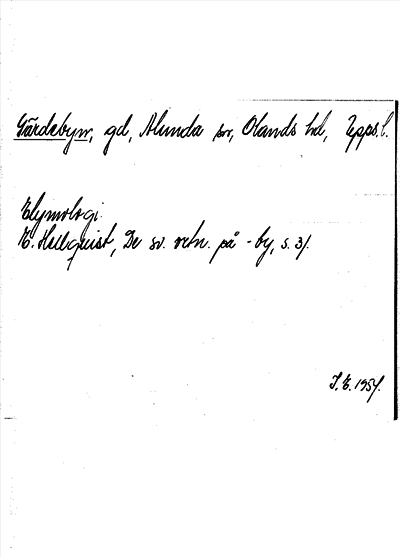 Gärdebyn, gd, Alunda sn, Olands hd, Upps. l.
Etymologi.
E. Hellquist, De sv. ortn. på -by, s. 31.
1951.